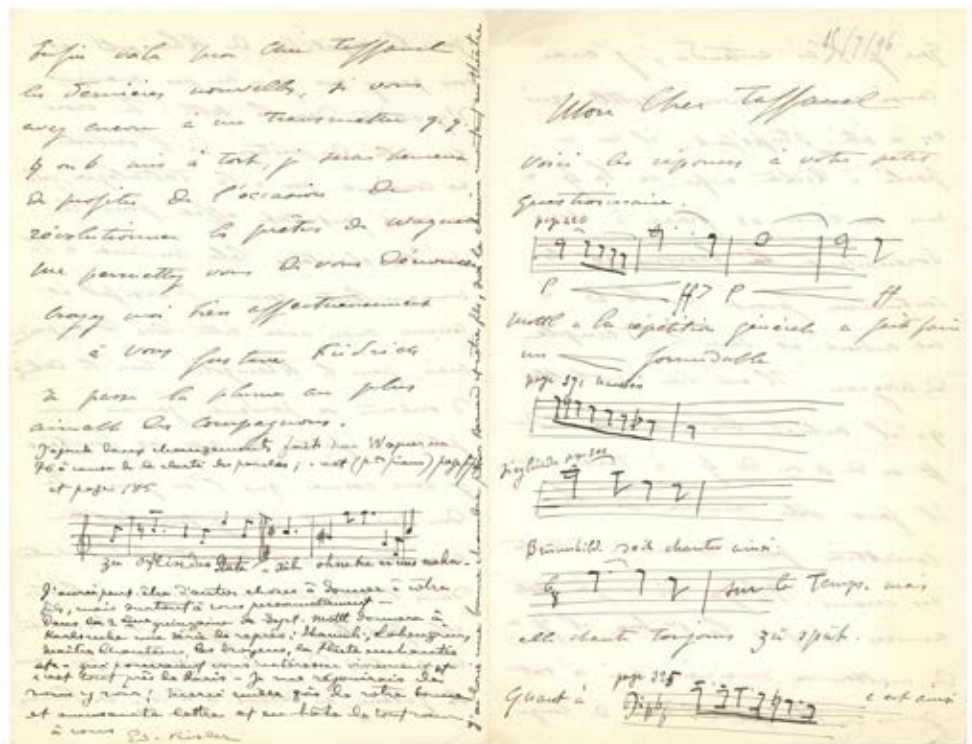 Enfin voilà mon cher Taffanel
les dernières nouvelles, si vous
avez encore à me transmettre q.q.
à tort, je serai heureux
de profiter de l'occasion de
révolutionner les prêtres de Wagner
me permettez vous de vous
croyez moi bien affectueusement
à vous Gustave
Je passe la plume au plus
aimable des compagnons.
J'ajoute deux changements faits par Wagner en
76 à cause de la clarté des paroles ; c'est (pon piano) page
et page 185
J'aurai peut être d'autres choses à donner à votre
fils, mais surtout à vous personnellement —
Dans la 2ème quinzaine de Sept. Mottl donnera à
Karlsruhe une série de représ: Lohengrin,
Maîtres Chanteurs, les Troyens, la Flûte enchantée
etc — qui pourraient vous intéresser vivement et
c'est tout près de Paris — Je me réjouirais de
vous y voir ! Merci mille fois de votre bonne
et amusante lettre et en hâte de tout cœur
à vous Ed. Risler
15/7/96
Mon Cher Taffanel
Voici les réponses à votre petit
Questionnaire.
page 220
p ff> p ff
Mottl à la répétition générale a fait faire
un formidable
page 371
Sieglinde page 302
Brünnhilde doit chanter ainsi:
sur le Temps. mais
elle chante toujours zu spät.
Quant à page 325 c'est ainsi